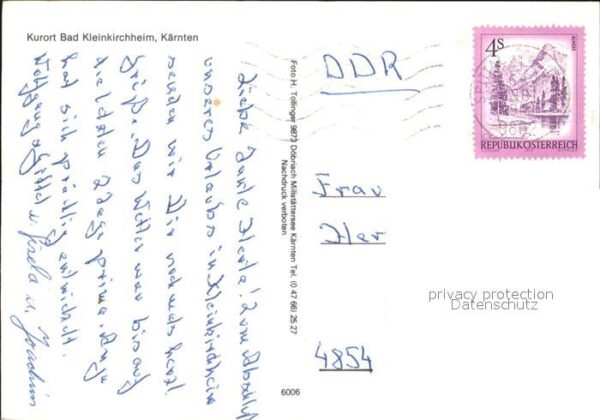 Kurort Bad Kleinkirchheim, Kärnten
Liebe Tante Herta! Zum Abschluß
unseres Urlaubs in Kleinkirchheim
senden wir Dir nochmals herzl.
Grüße. Das Wetter war bis auf
die letzten 2 Tage prima.
hat sich prächtig entwickelt.
Gisela u. Joachim
Foto H. Tollinger 9873 Döbriach Millstättersee Kärnten Tel. (0 47 66) 25 27
Nachdruck verboten
6006
DDR
4S
REPUBLIK ÖSTERREICH
Frau
Her
4854
privacy protection
Datenschutz